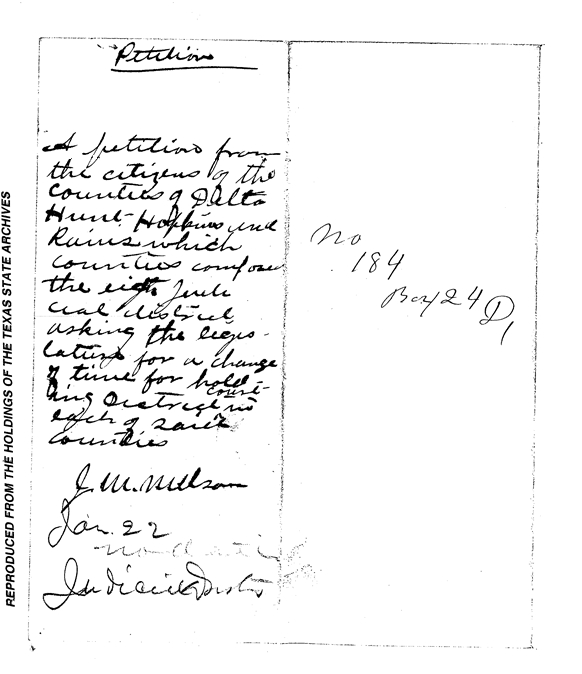 Petition
A petition from
the citizens of the
Counties of Delta
Hunt Hopkins and
Rains which
counties compose
the eigh Judi
cial district
asking the legis-
lature for a change
of time for hold
ing District court in
each of said
counties
J. M. 
Jan. 22
Judicial Dist
No
184
Box 24 D
1
REPRODUCED FROM THE HOLDINGS OF THE TEXAS STATE ARCHIVES